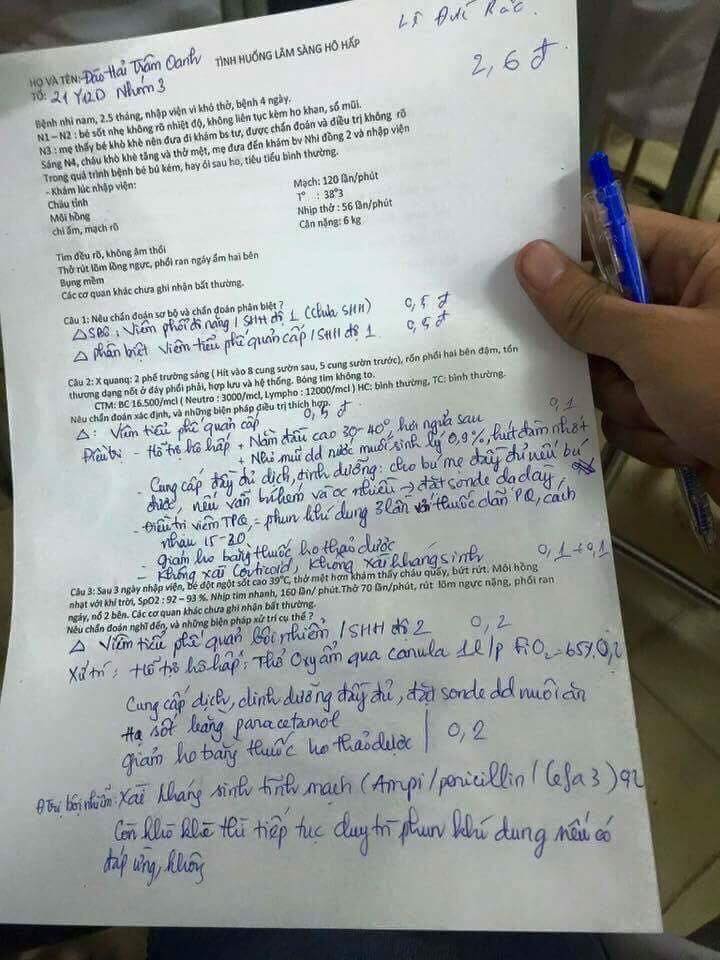 Lê Đức Bắc.
HỌ VÀ TÊN: Đào Hải Trâm Oanh TÌNH HUỐNG LÂM SÀNG HÔ HẤP
TỔ: 21 Y12D Nhóm 3
2,6 đ
Bệnh nhi nam, 2.5 tháng, nhập viện vì khó thở, bệnh 4 ngày.
N1 – N2 : bé sốt nhẹ không rõ nhiệt độ, không liên tục kèm ho khan, sổ mũi.
N3 : mẹ thấy bé khò khè nên đưa đi khám bs tư, được chẩn đoán và điều trị không rõ
Sáng N4, cháu khò khè tăng và thở mệt, mẹ đưa đến khám bv Nhi đồng 2 và nhập viện
Trong quá trình bệnh bé bú kém, hay ói sau ho, tiêu tiểu bình thường.
- Khám lúc nhập viện:
Cháu tỉnh Mạch: 120 lần/phút
Môi hồng T° : 38°3
chi ấm, mạch rõ Nhịp thở : 56 lần/phút
Cân nặng: 6 kg
Tim đều rõ, không âm thổi
Thở rút lõm lồng ngực, phổi ran ngáy ẩm hai bên
Bụng mềm
Các cơ quan khác chưa ghi nhận bất thường.
Câu 1: Nêu chẩn đoán sơ bộ và chẩn đoán phân biệt ?
△ SBộ : Viêm phổi nặng / SHH độ 1 (chưa SHH) 0,5 đ
△ phân biệt Viêm tiểu phế quản cấp / SHH độ 1 0,5 đ
Câu 2: X quang: 2 phế trường sáng ( Hít vào 8 cung sườn sau, 5 cung sườn trước), rốn phổi hai bên đậm, tổn
thương dạng nốt ở đáy phổi phải, hợp lưu và hệ thống. Bóng tim không to.
CTM: BC 16.500/mcl ( Neutro : 3000/mcl, Lympho : 12000/mcl ) HC: bình thường, TC: bình thường.
Nêu chẩn đoán xác định, và những biện pháp điều trị thích hợp.
△ : Viêm tiểu phế quản cấp 0,5 đ
Điều trị - Hỗ trợ hô hấp + Nằm đầu cao 30-40°, hơi ngửa sau 0,1
+ Nhỏ mũi dd nước muối sinh lý 0,9%, hút đàm nhớt
- Cung cấp đầy đủ dịch, dinh dưỡng: cho bú mẹ đầy đủ nếu bú
được, nếu vẫn bú kém và ọc nhiều → đặt sonde dạ dày
- Điều trị viêm TPQ = phun khí dung 3 lần với thuốc dãn PQ, cách
nhau 15-20.
- Giảm ho bằng thuốc ho thảo dược
- Không xài Corticoid, không xài kháng sinh 0,1 + 0,1
Câu 3: Sau 3 ngày nhập viện, bé đột ngột sốt cao 39°C, thở mệt hơn khám thấy cháu quấy, bứt rứt. Môi hồng
nhạt với khí trời, SpO2 : 92 – 93 %. Nhịp tim nhanh, 160 lần/ phút.Thở 70 lần/phút, rút lõm ngực nặng, phổi ran
ngáy, nổ 2 bên. Các cơ quan khác chưa ghi nhận bất thường.
Nêu chẩn đoán nghĩ đến, và những biện pháp xử trí cụ thể ?
△ Viêm tiểu phế quản bội nhiễm / SHH độ 2 0,2
Xử trí : Hỗ trợ hô hấp: Thở Oxy ẩm qua canula 1l/p FiO2 = 65% 0,2
Cung cấp dịch, dinh dưỡng đầy đủ, đặt sonde dd nuôi ăn
Hạ sốt bằng paracetamol
giảm ho bằng thuốc ho thảo dược 0,2
Đtrị bội nhiễm: Xài kháng sinh tĩnh mạch (Ampi/penicillin / Cefa 3) 0,2
Còn khò khè thì tiếp tục duy trì phun khí dung nếu có
đáp ứng, không